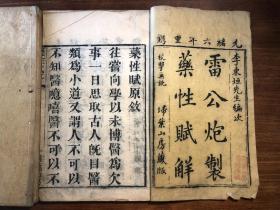 光緒六年重鐫
李東垣先生編次
雷公炮製
藥性賦解
校對無訛 掃葉山房藏版
藥性賦原敘
往嘗向學以未博醫為欠
事一日思取古人既目醫
類為小道又謂人不可以
不知醫噫嘻醫不可以不